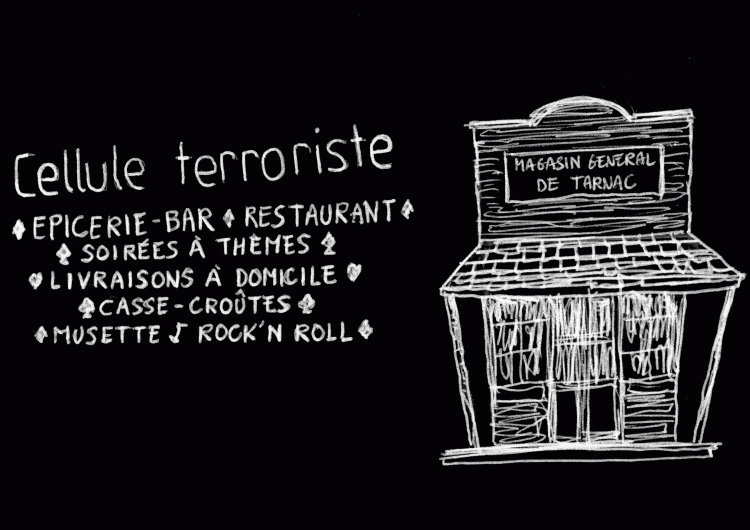 Cellule terroriste
♦ EPICERIE-BAR ♦ RESTAURANT ♠
♠ SOIRÉES À THÈMES ♠
♥ LIVRAISONS À DOMICILE ♥
♠ CASSE-CROÛTES ♠
♦ MUSETTE ♪ ROCK'N ROLL ♦
MAGASIN GENERAL
DE TARNAC